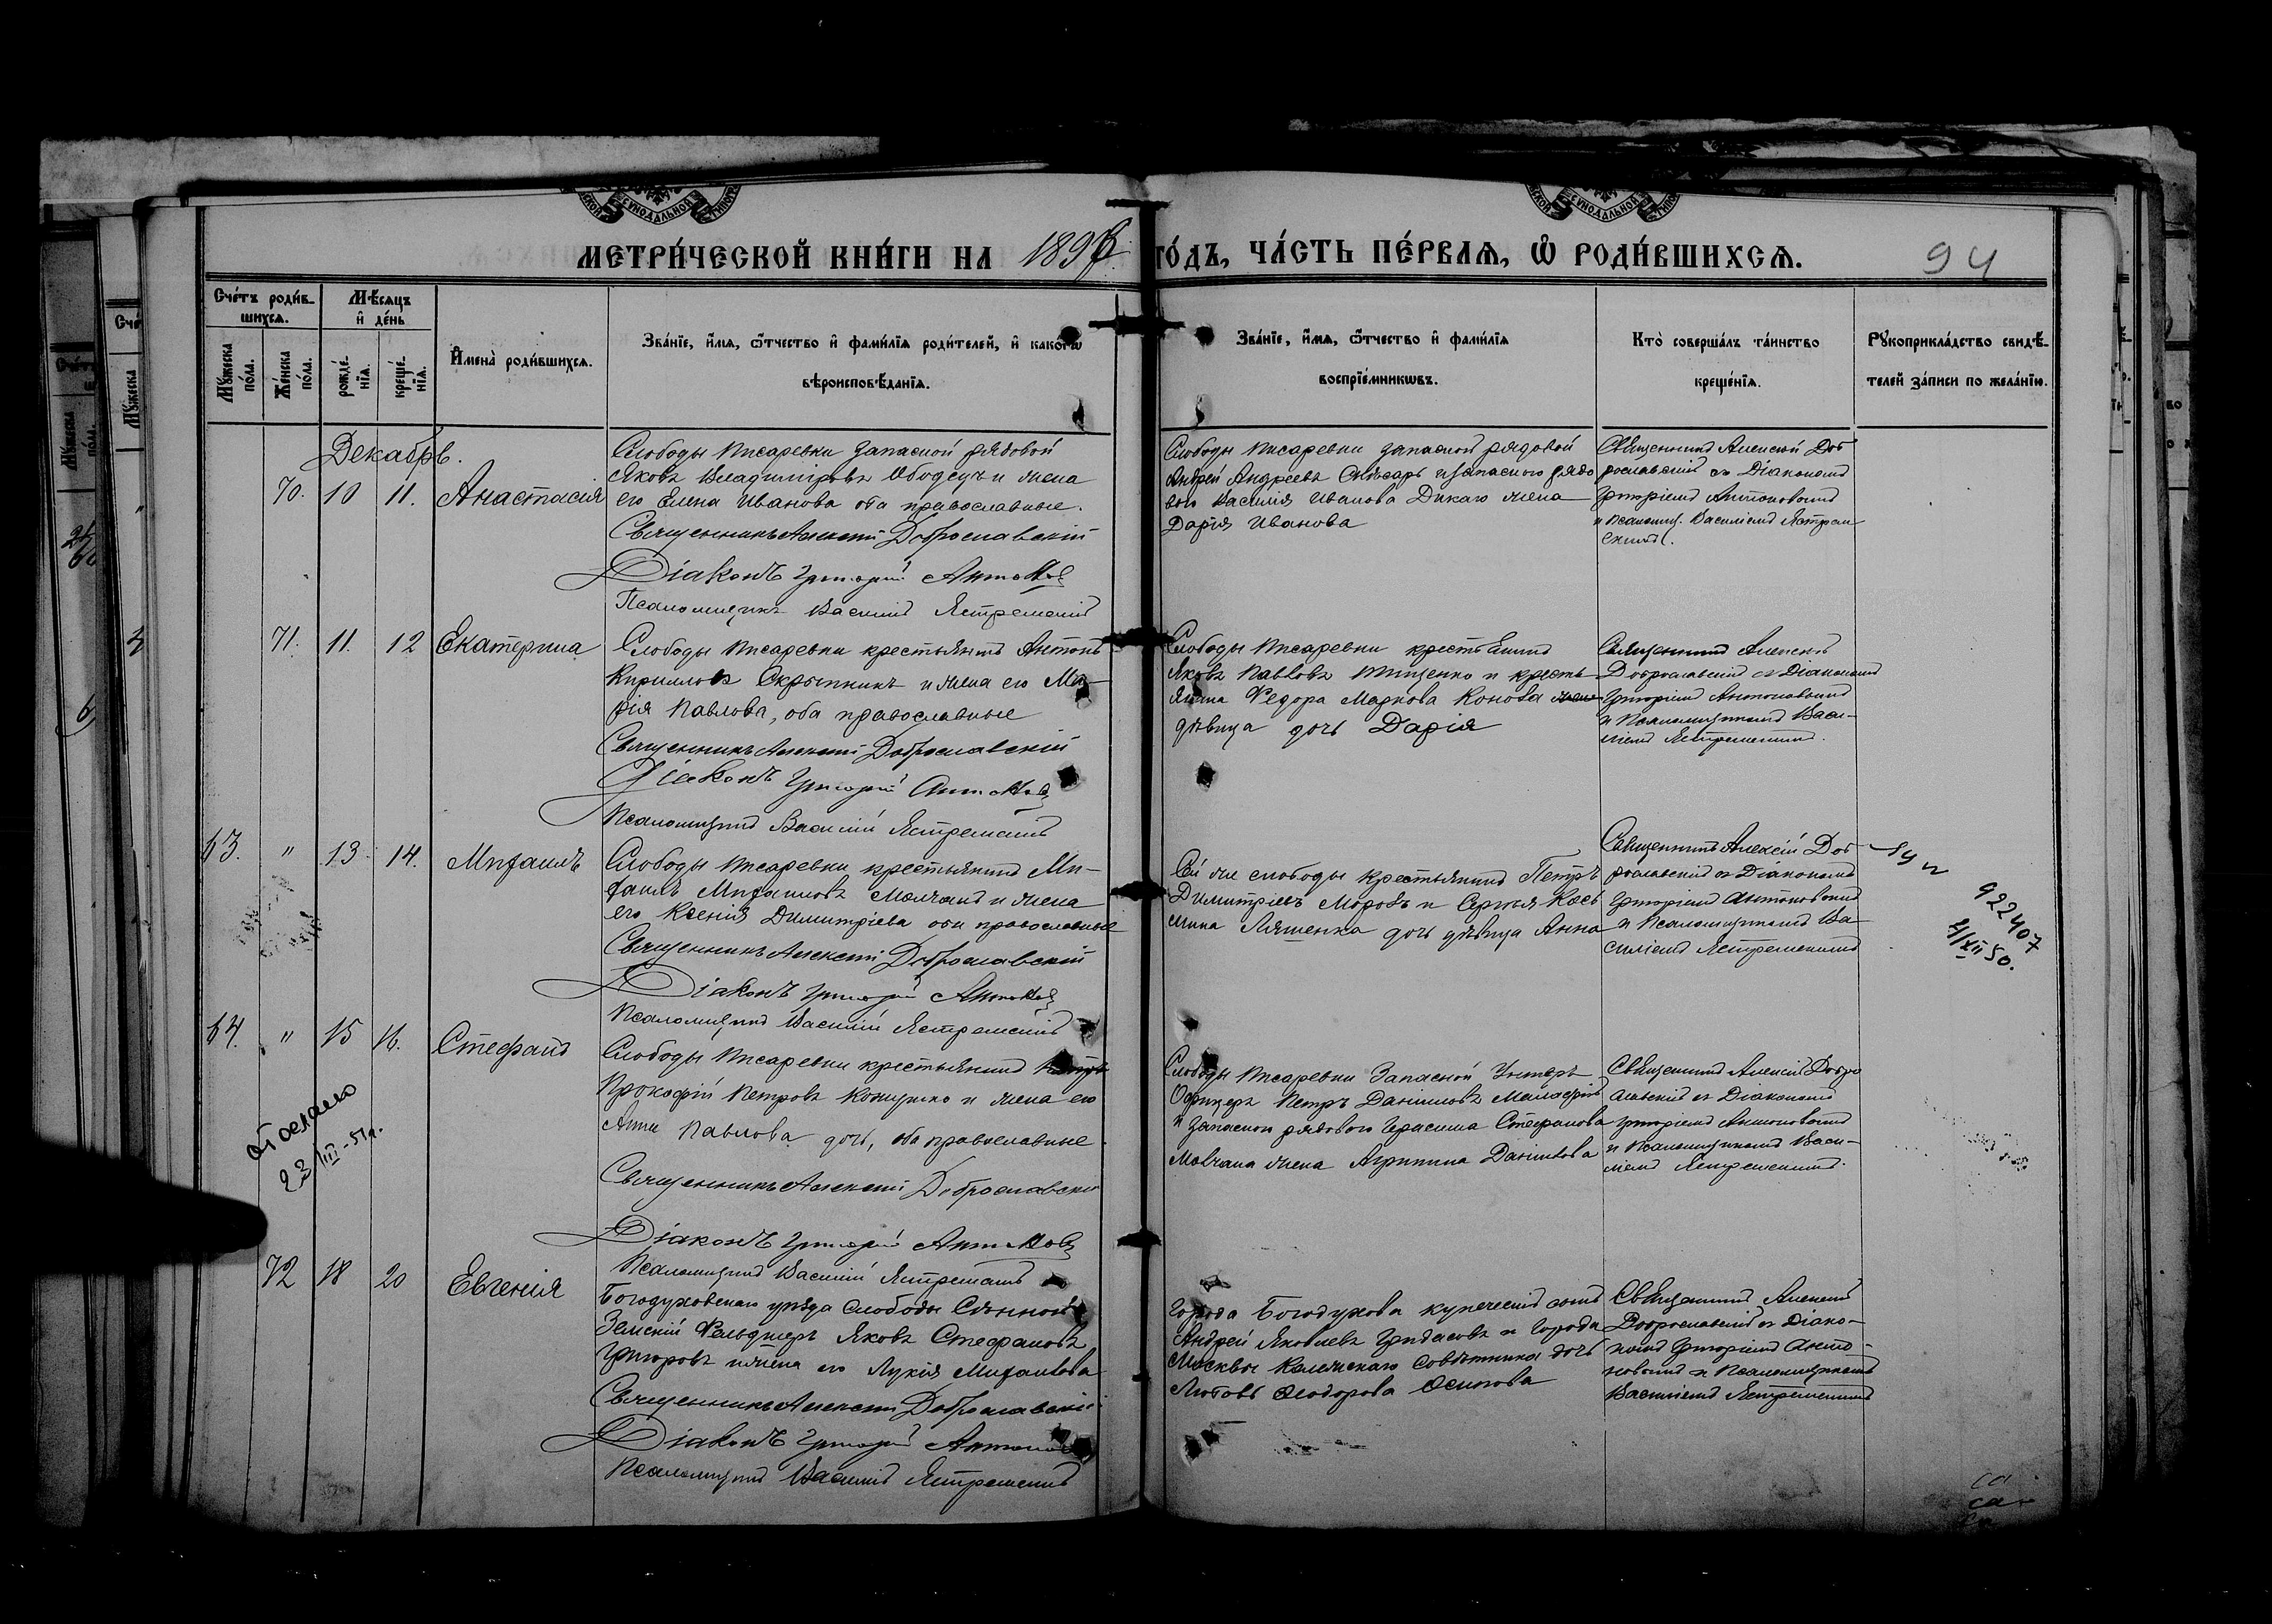 МЕТРИ́ЧЕСКОЙ КНИ́ГИ НА 1896 ГО́ДЪ, ЧА́СТЬ ПЕ́РВАѦ, Ѡ҆ РОДИ́ВШИХСѦ.
94
Сче́тъ роди́в-
шихсѧ.
Мѣ́сѧцъ
и҆ де́нь
Мꙋ́жеска
по́ла.
Же́нска
по́ла.
рожде́-
нїѧ.
креще́-
нїѧ.
И҆мена̀ роди́вшихсѧ.
Зва́нїе, и҆́мѧ, ѻ҆́тчество и҆ фами́лїѧ роди́телей, и҆ како́гѡ
вѣроисповѣ́данїѧ.
Зва́нїе, и҆́мѧ, ѻ҆́тчество и҆ фами́лїѧ
воспрїе́мникѡвъ.
Кто̀ соверша́лъ та́инство
креще́нїѧ.
Рꙋкоприкла́дство свидѣ́-
телей за́писи по жела́нїю.
Декабрь.
70. 10 11. Анастасія
Слободы Писаревки запасной рядовой
Яковъ Владиміровъ и жена
его Елена Иванова оба православные.
Священникъ Алексій Доброславскій
Діаконъ Григорій Антоновъ
Псаломщикъ Василій Ястремскій
Слободы Писаревки запасной рядовой
Андрей Андреевъ Слѣсарь и запасного рядо
вого Василія Иванова Дикаго жена
Дарія Иванова
Священникъ Алексій Доб
рославскій съ Діакономъ
Григоріемъ Антоновымъ
и Псаломщ. Василіемъ Ястрем
скимъ.
71. 11. 12 Екатерина
Слободы Писаревки крестьянинъ Антонъ
Кирилловъ Скрыпникъ и жена его Ма-
рія Павлова, оба православные
Священникъ Алексій Доброславскій
Діаконъ Григорій Антоновъ
Псаломщикъ Василій Ястремскій
Слободы Писаревки крестьянинъ
Яковъ Павловъ Тищенко и кресть
янина Ѳедора Маркова Конова
дѣвица дочь Дарія
Священникъ Алексій
Доброславскій съ Діакономъ
Григоріемъ Антоновымъ
и Псаломщикомъ Васи-
ліемъ Ястремскимъ.
63. " 13. 14. Михаилъ
Слободы Писаревки крестьянинъ Ми-
хаилъ Михаиловъ Молчанъ и жена
его Ксенія Димитріева оба православные
Священникъ Алексій Доброславскій
Діаконъ Григорій Антоновъ
Псаломщикъ Василій Ястремскій
Сей же слободы крестьянинъ Петръ
Димитріевъ Морозъ и Сергія Кось
мина Ляшенка дочь дѣвица Анна
Священникъ Алексій Доб
рославскій съ Діакономъ
Григоріемъ Антоновымъ
и Псаломщикомъ Ва-
силіемъ Ястремскимъ
922407
4/XII 50.
64. " 15 16. Стефанъ
Слободы Писаревки крестьянинъ
Прокофій Петровъ и жена его
Анна Павлова дочь, оба православные
Священникъ Алексій Доброславскій
Діаконъ Григорій Антоновъ
Псаломщикъ Василій Ястремскій
Слободы Писаревки Запасной Унтеръ
Офицеръ Петръ Даніиловъ
и запасного рядового Герасима Стефанова
Молчана жена Агрипина Даніилова
Священникъ Алексій Добро
славскій съ Діакономъ
Григоріемъ Антоновымъ
и Псаломщикомъ Васи-
ліемъ Ястремскимъ.
отослано
23/III-51г.
72 18 20 Евгенія
Богодуховскаго уѣзда слободы Сѣнной
Земскій Фельдшеръ Яковъ Стефановъ
Григоровъ и жена его Лукія Михаилова
Священникъ Алексій Доброславскій
Діаконъ Григорій Антоновъ
Псаломщикъ Василій Ястремскій
Города Богодухова купеческій сынъ
Андрей Яковлевъ и города
Москвы Совѣтника дочь
Любовь Ѳеодорова Осипова
Священникъ Алексій
Доброславскій съ Діако-
номъ Григоріемъ Анто-
новымъ и Псаломщикомъ
Василіемъ Ястремскимъ